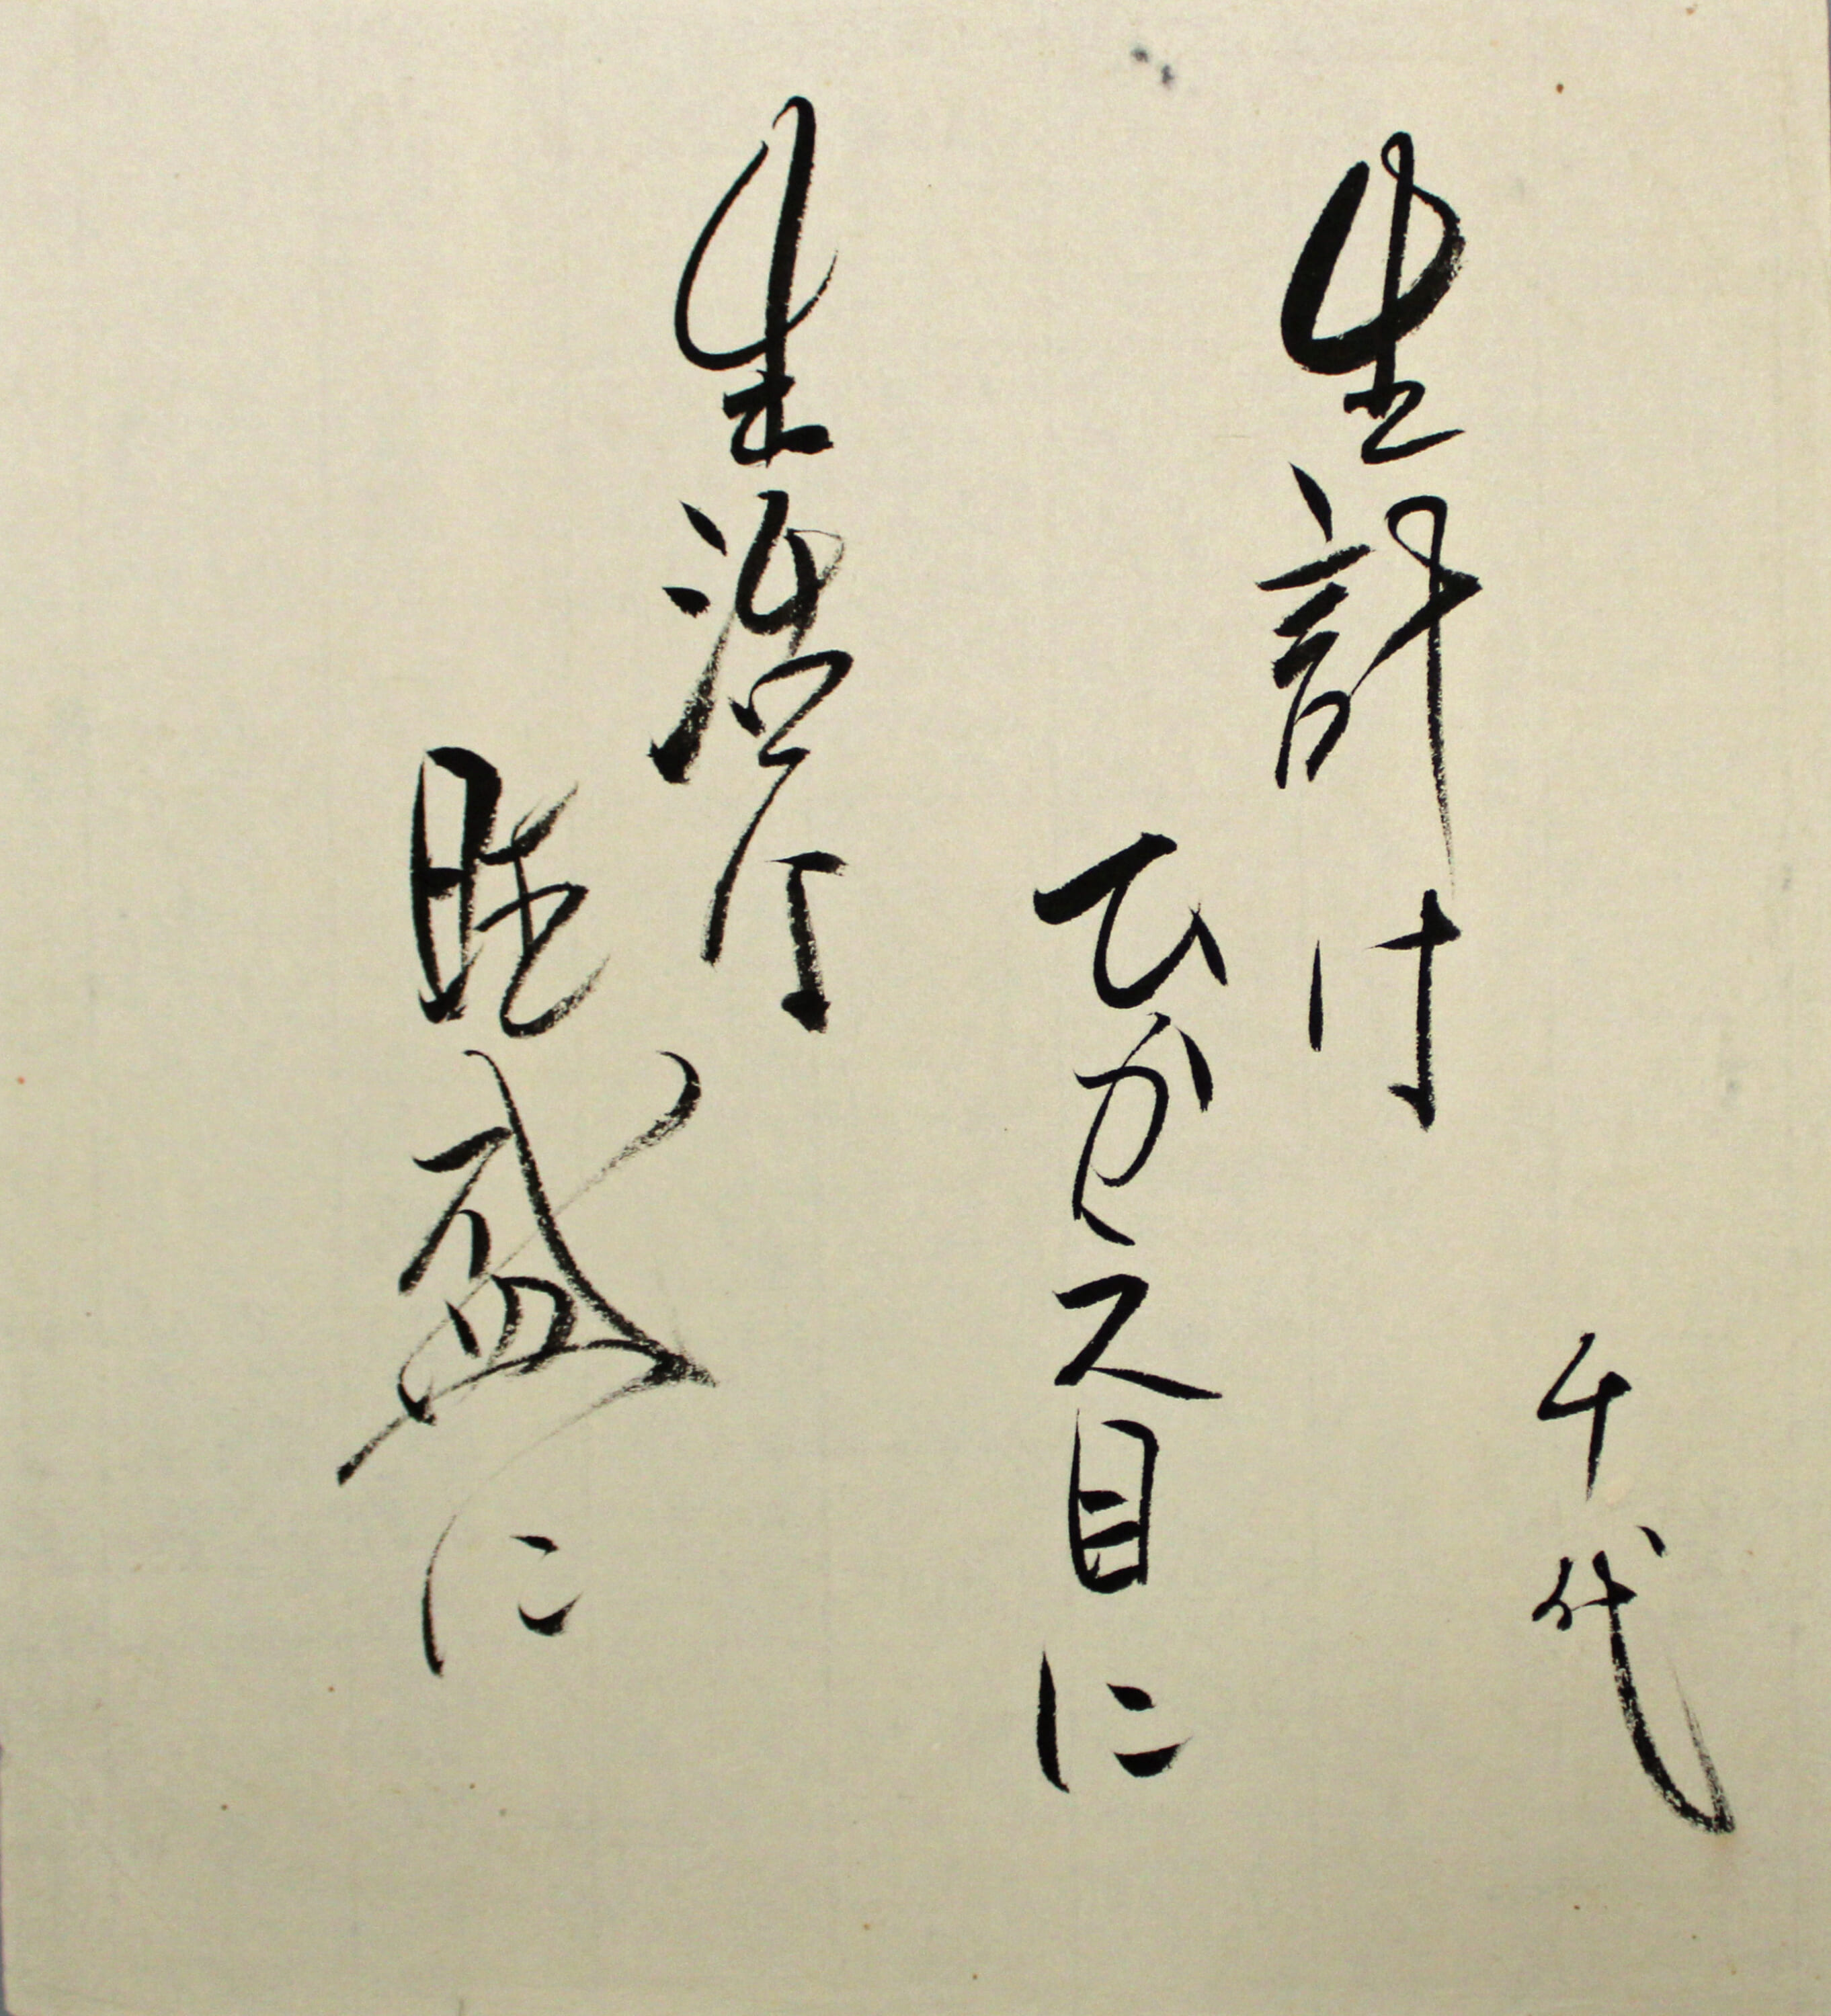 千代
生計は
ひかえ目に
生活は
旺盛に